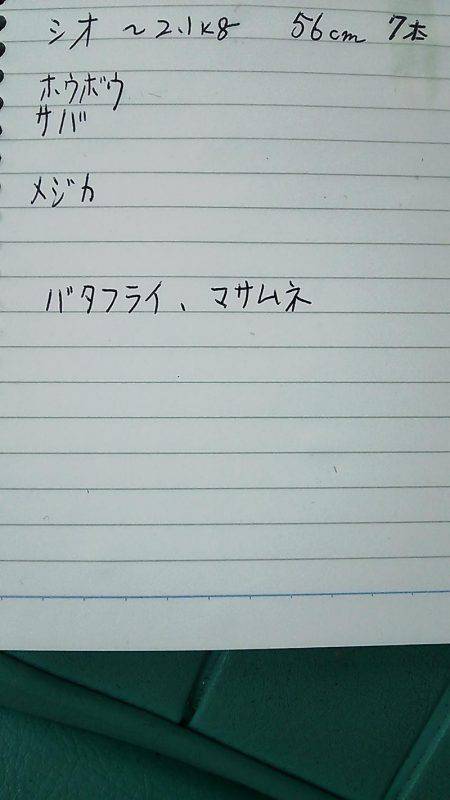 シオ ~2.1kg 56cm 7本
ホウボウ
サバ
メジカ
バタフライ、マサムネ